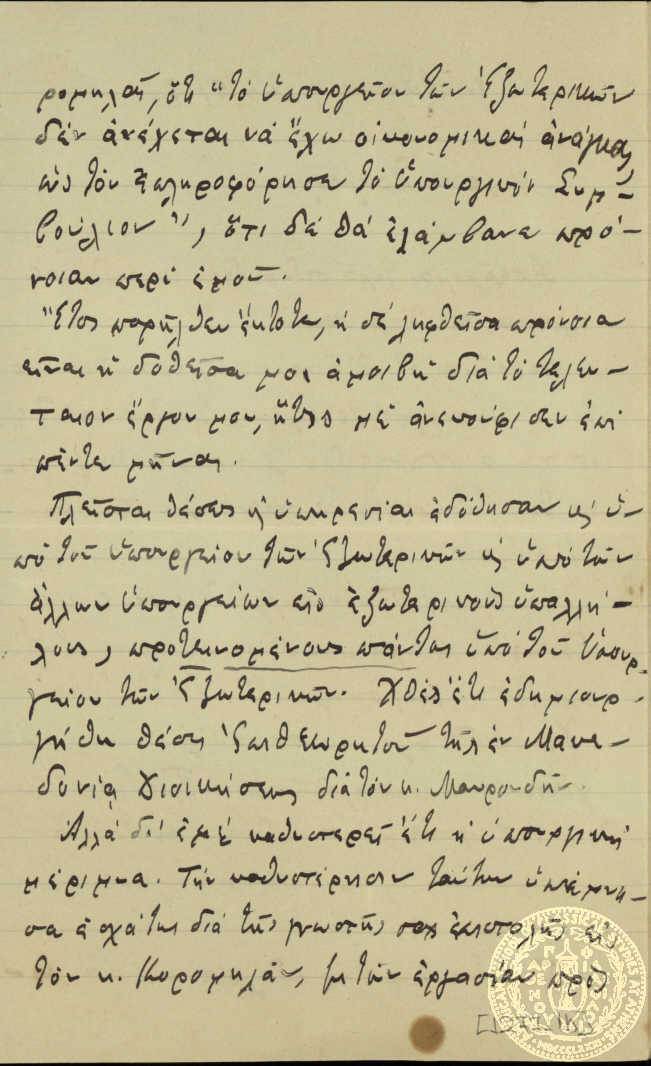 ρομηλᾶς, ὅτι "τὸ ὑπουργεῖον τῶν Ἐξωτερικῶν
δὲν ἀνέχεται νὰ ἔχω οἰκονομικὰς ἀνάγκας
ὡς τὸν ἐπληροφόρησε τὸ Ὑπουργικὸν Συμ-
βούλιον", ὅτι δὲ θὰ ἐλάμβανε πρό-
νοιαν περὶ ἐμοῦ.
Ἔτος παρῆλθεν ἔκτοτε, ἡ δὲ ληφθεῖσα πρόνοια
εἶναι ἡ δοθεῖσα μοι ἀμοιβὴ διὰ τὸ τελευ-
ταῖον ἔργον μου, ἥτις μὲ ἀνεκούφισεν ἐπὶ
πέντε μῆνας.
Πλεῖσται θέσεις ἢ ὑπηρεσίαι ἐδόθησαν καὶ ὑ-
πὸ τοῦ ὑπουργείου τῶν Ἐξωτερικῶν καὶ ὑπὸ τῶν
ἄλλων ὑπουργείων εἰς ἐξωτερικοὺς ὑπαλλή-
λους, προτεινομένους πάντας ὑπὸ τοῦ Ὑπουρ-
γείου τῶν Ἐξωτερικῶν. Χθὲς ἔτι ἐδημιουρ-
γήθη θέσις Ἐπιθεωρητοῦ τῆς ἐν Μακε-
δονίᾳ Διοικήσεως διὰ τὸν κ. Μαυρουδῆν.
Ἀλλὰ δι' ἐμὲ καθυστερεῖ ἔτι ἡ ὑπουργικὴ
μέριμνα. Τὴν καθυστέρησιν ταύτην ὑπέμνη-
σα ἐσχάτως διὰ τῆς γνωστῆς σας ἐπιστολῆς εἰς
τὸν κ. Κορομηλᾶν, μὲ τὸν ἐργασίαν πρὸς